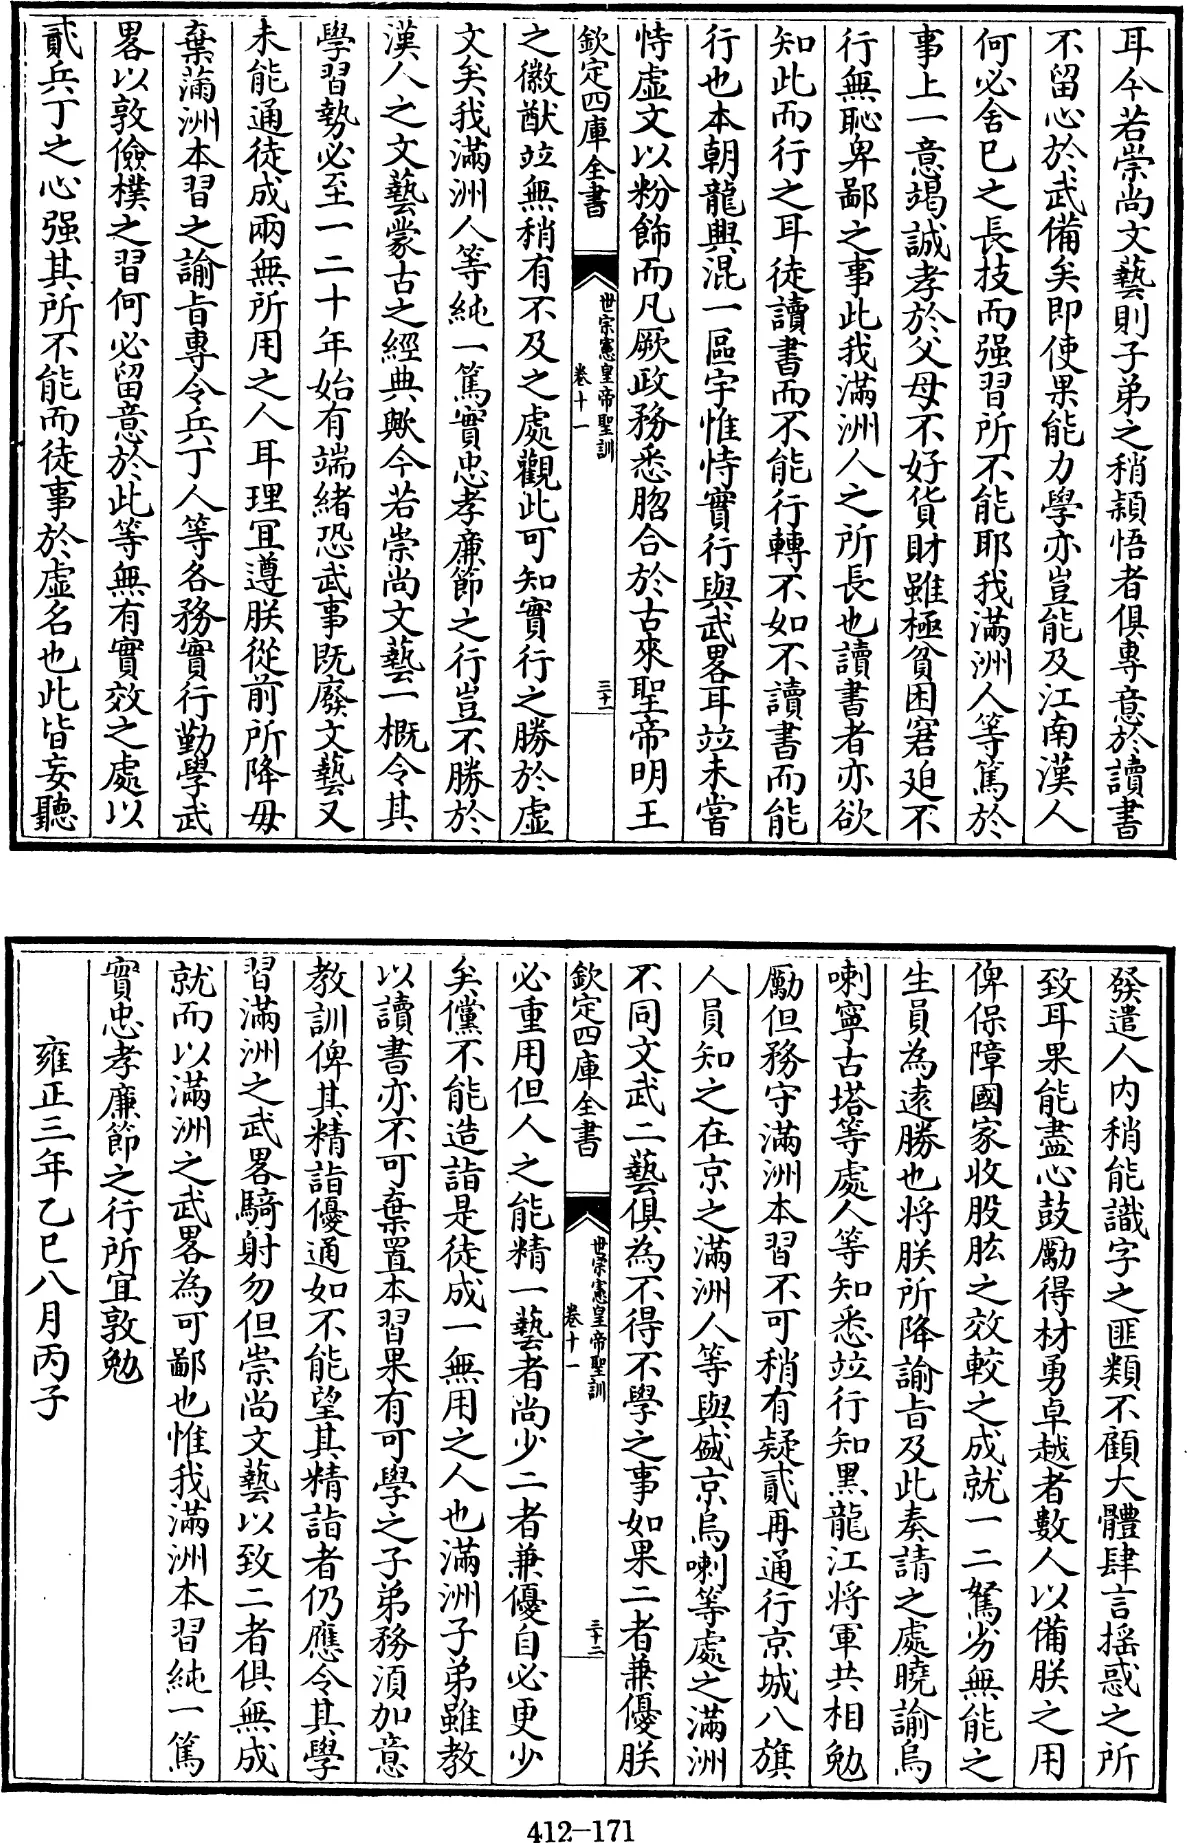 耳今若崇尚文藝則子弟之稍穎悟者俱專意於讀書
不留心於武備矣即使果能力學亦豈能及江南漢人
何必舍已之長技而强習所不能耶我滿洲人等篤於
事上一意竭誠孝於父母不好貨財雖極貧困窘廹不
行無恥卑鄙之事此我滿洲人之所長也讀書者亦欲
知此而行之耳徒讀書而不能行轉不如不讀書而能
行也本朝龍興混一區宇惟恃實行與武畧耳竝未嘗
恃虛文以粉飾而凡厥政務悉脗合於古來聖帝明王
欽定四庫全書
世宗憲皇帝聖訓
卷十一
三十一
之徽猷竝無稍有不及之處觀此可知實行之勝於虛
文矣我滿洲人等純一篤實忠孝廉節之行豈不勝於
漢人之文藝蒙古之經典歟今若崇尚文藝一概令其
學習勢必至一二十年始有端緒恐武事既廢文藝又
未能通徒成兩無所用之人耳理宜遵朕從前所降毋
棄滿洲本習之諭旨專令兵丁人等各務實行勤學武
畧以敦儉樸之習何必留意於此等無有實效之處以
貳兵丁之心强其所不能而徒事於虛名也此皆妄聽
發遣人内稍能識字之匪類不顧大體肆言揺惑之所
致耳果能盡心鼓勵得材勇卓越者數人以備朕之用
俾保障國家收股肱之效較之成就一二駑劣無能之
生員為逺勝也將朕所降諭旨及此奏請之處曉諭烏
喇寧古塔等處人等知悉竝行知黑龍江將軍共相勉
勵但務守滿洲本習不可稍有疑貳再通行京城八旗
人員知之在京之滿洲人等與盛京烏喇等處之滿洲
不同文武二藝俱為不得不學之事如果二者兼優朕
欽定四庫全書
世宗憲皇帝聖訓
卷十一
三十二
必重用但人之能精一藝者尚少二者兼優自必更少
矣儻不能造詣是徒成一無用之人也滿洲子弟雖教
以讀書亦不可棄置本習果有可學之子弟務須加意
教訓俾其精詣優通如不能望其精詣者仍應令其學
習滿洲之武畧騎射勿但崇尚文藝以致二者俱無成
就而以滿洲之武畧為可鄙也惟我滿洲本習純一篤
實忠孝廉節之行所宜敦勉
雍正三年乙巳八月丙子
412-171